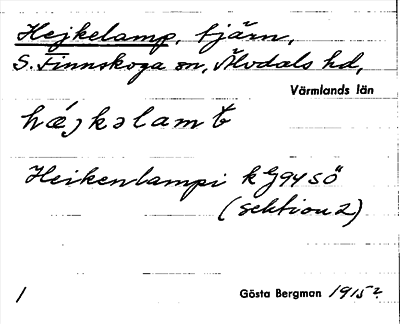 Hejkelamp, tjärn,
S. Finnskoga sn, Älvdals hd,
Värmlands län
hæjkəlamt
Heikenlampi kg 94 SÖ
(sektion 2)
1 Gösta Bergman 1915?